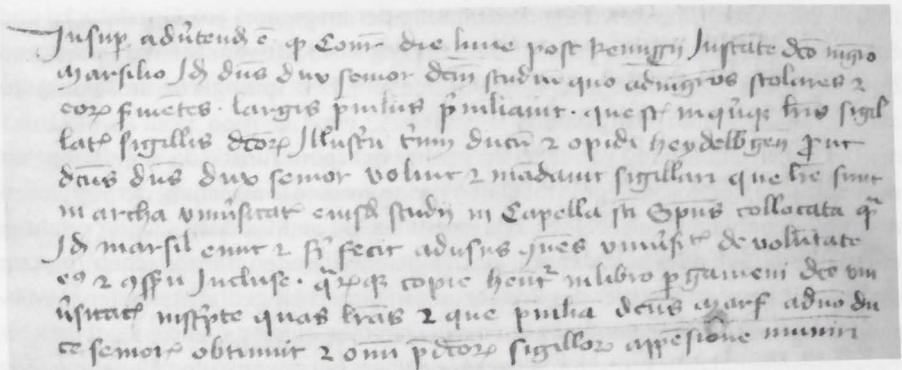 Insuꝑ adūtend ē ꝙ Comᷓ die lune post Remigii Instāte dc̄o mḡro
Marsilio Id̄ dn̄s dux senior dc̄m studiū quo ad mḡros scolares ⁊
eorꝝ fūētes largis p̄uil̄iis p̄uil̄iauit · que st̄ in q̄nqꝫ l̄ris sigil
latꝭ sigillis dc̄orꝝ Illustriū triū ducū ⁊ opidi heydelb̄gen̄ ꝓut
dc̄us dn̄s dux senior voluit ⁊ mādauit sigillari que l̄re sunt
in archa vniūsitatꝭ eiusd̄ studii in Capella sc̄i Sp̄us collocata q̄
Id̄ marsil̄ emit ⁊ fi͛ fecit ad usus vniūsitꝭ de volūtate
eoꝝ ⁊ ꝯssu Incluse · q̄rꝝqꝫ copie hēnt᷑ in libro ꝑgameni dc̄o vni
ūsitatꝭ inscʳpte quas l̄ras ⁊ que p̄uil̄ia dc̄us Marſ a dn̄o du
ce seniorꝭ obtinuit ⁊ om̄i p̄dc̄orꝝ sigillorꝝ appēsione muniri